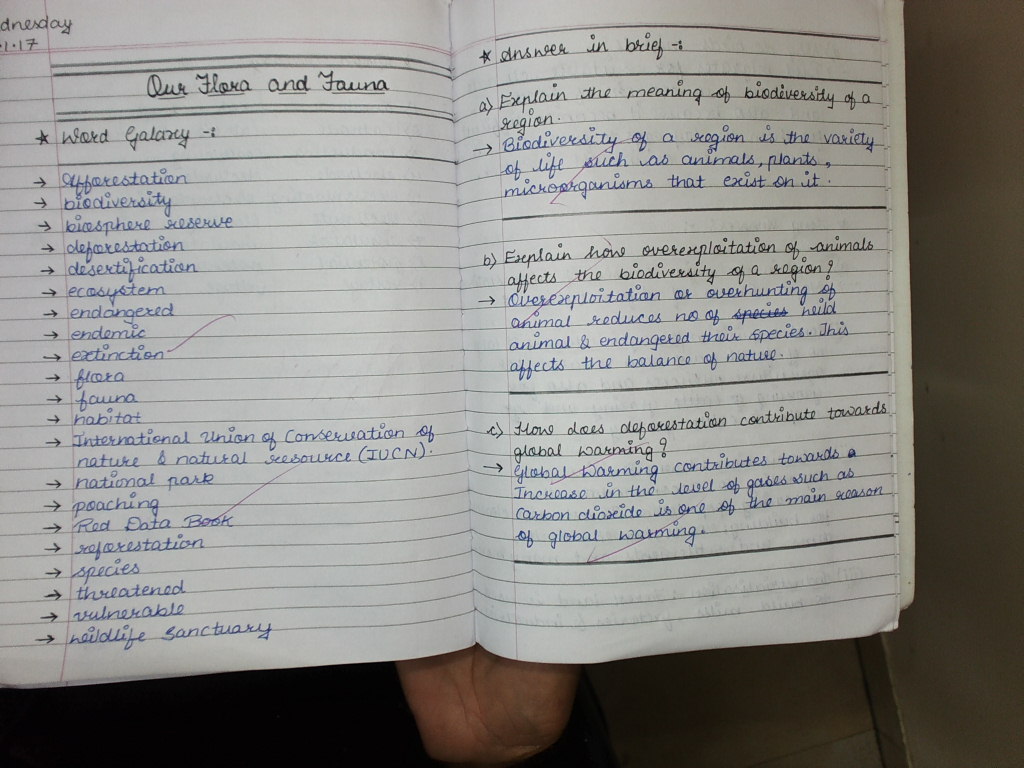 dnesday
.1.17
Our Flora and Fauna
★ Word Galaxy -:
→ Afforestation
→ biodiversity
→ biosphere reserve
→ deforestation
→ desertification
→ ecosystem
→ endangered
→ endemic
→ extinction
→ flora
→ fauna
→ habitat
→ International Union of Conservation of
nature & natural resource (IUCN).
→ national park
→ poaching
→ Red Data Book
→ reforestation
→ species
→ threatened
→ vulnerable
→ wildlife Sanctuary
★ Answer in brief -:
a) Explain the meaning of biodiversity of a
region.
→ Biodiversity of a region is the variety
of life such as animals, plants,
microorganisms that exist on it.
b) Explain how overexploitation of animals
affects the biodiversity of a region?
→ Overexploitation or overhunting of
animal reduces no of species wild
animal & endangered their species. This
affects the balance of nature.
c) How does deforestation contribute towards
global warming?
→ Global Warming contributes towards a
Increase in the level of gases such as
Carbon dioxide is one of the main reason
of global warming.